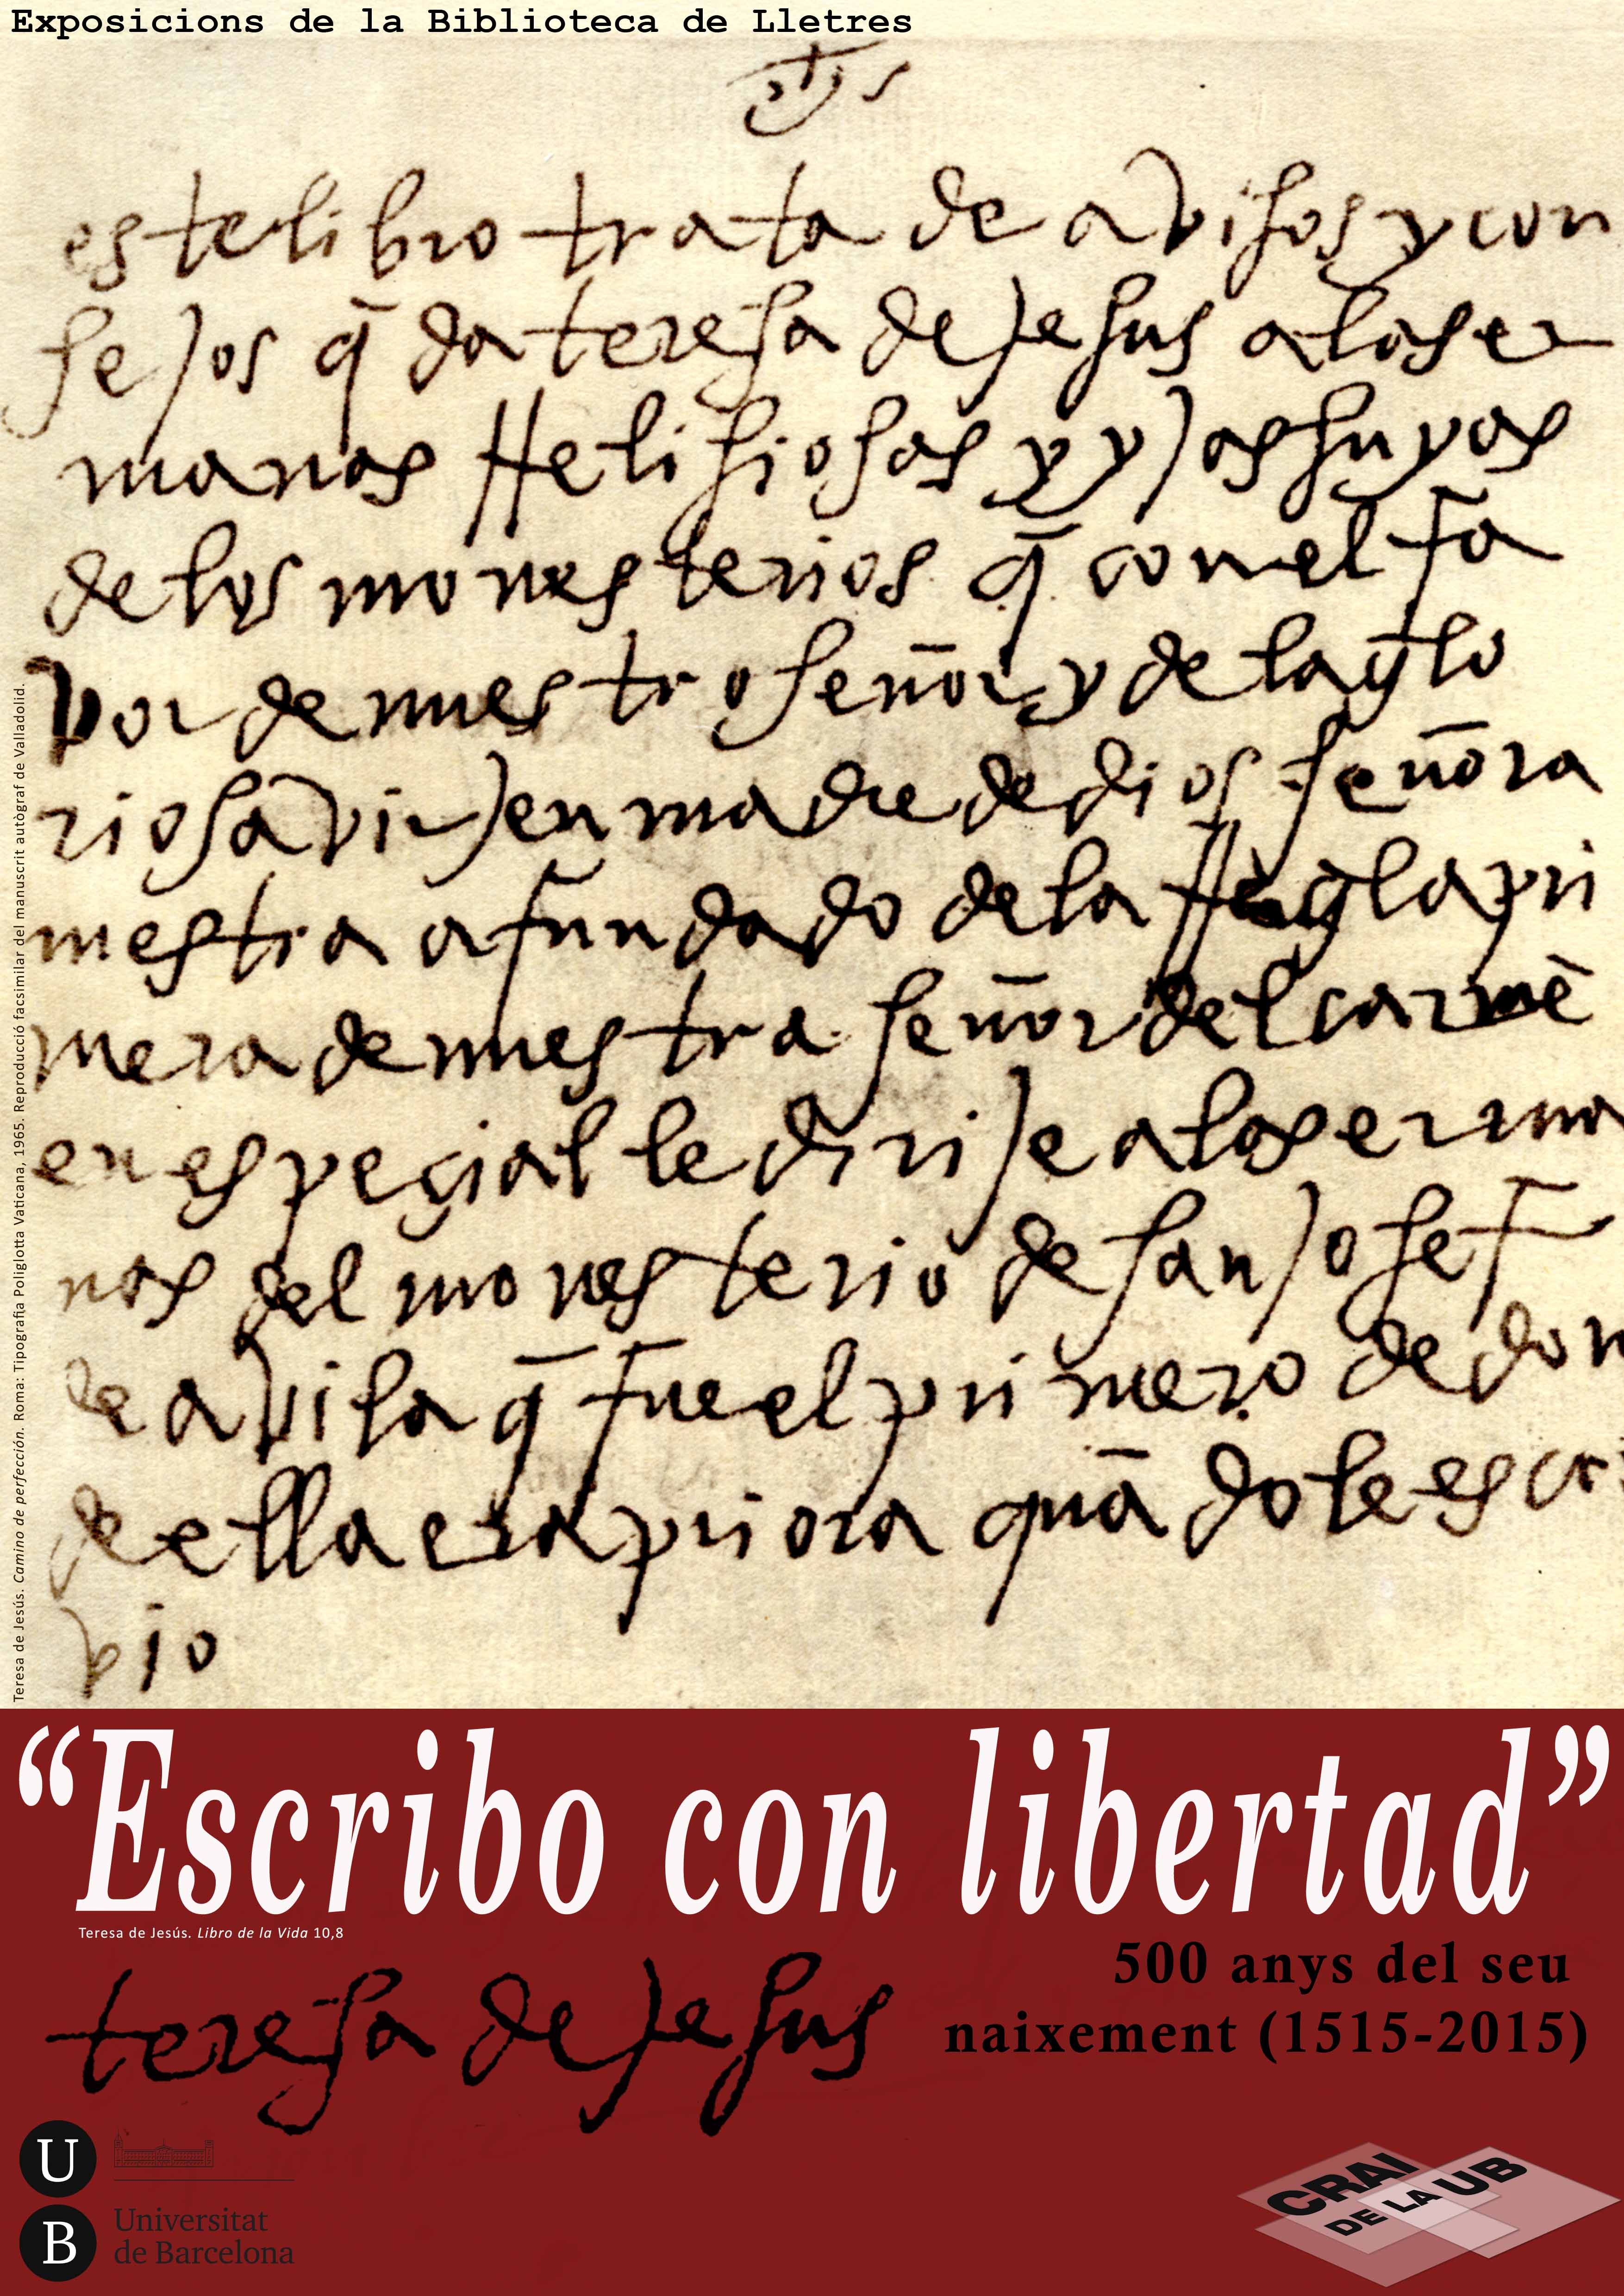 Exposicions de la Biblioteca de Lletres
este libro trata de avisos y con
sejos q̄ da teresa de Jesus a las er
manas Relisiosas y yjas suyas
de los monesterios q̄ con el fa
vor de nuestro señor y de la glo
riosa virjen madre de dios señora
nuestra a fundado de la Regla pri
mera de nuestra señora del carmē
en espeçial le dirije a las erma
nas del monesterio de san Josef
de avila q̄ fue el primero de don
de ella era priora quādo le escri
vio
Teresa de Jesús. Camino de perfección. Roma: Tipografia Poliglotta Vaticana, 1965. Reproducció facsimilar del manuscrit autògraf de Valladolid.
“Escribo con libertad”
Teresa de Jesús. Libro de la Vida 10,8
500 anys del seu
naixement (1515-2015)
teresa de Jesus
U
B
Universitat
de Barcelona
CRAI
DE LA UB